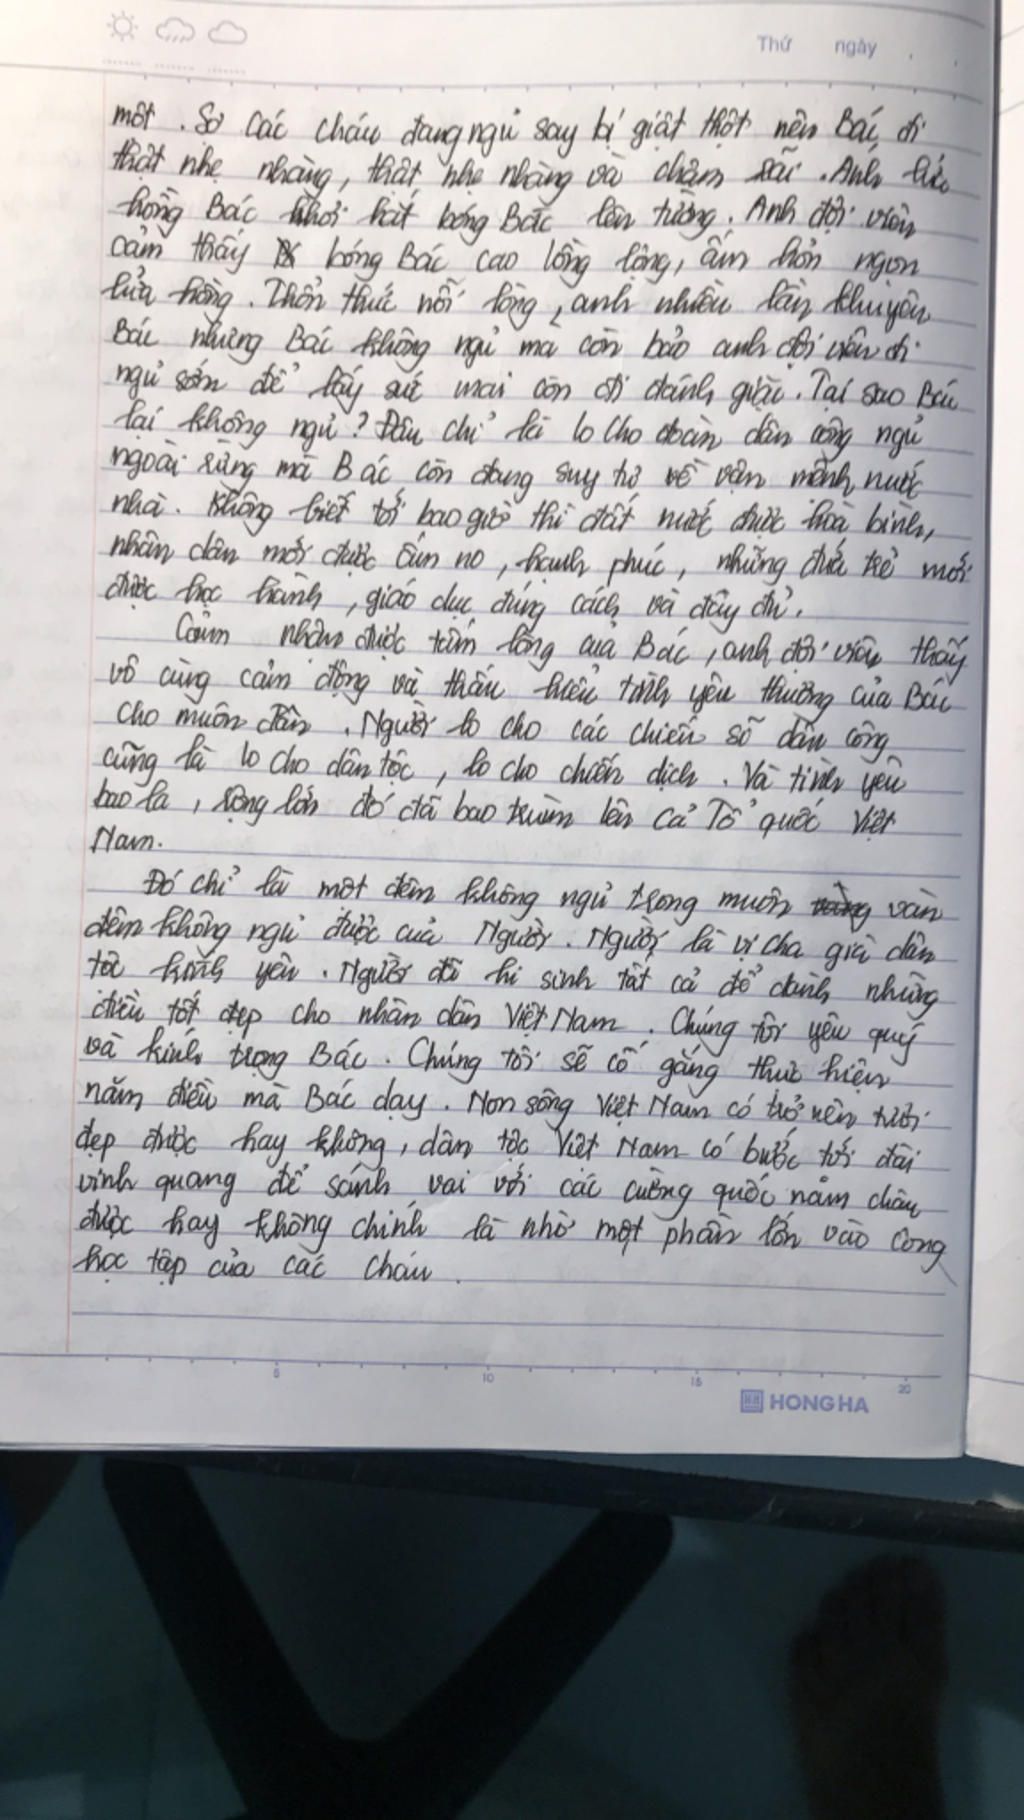 Thứ ngày
một. Sợ các cháu đang ngủ say bị giật thột nên Bác đi
thật nhẹ nhàng, thật nhẹ nhàng và chậm rãi. Ánh lửa
hồng Bác khơi hắt bóng Bác lên tường. Anh đội viên
cảm thấy bóng Bác cao lồng lộng, ấm hơn ngọn
lửa hồng. Thổn thức nỗi lòng, anh nhiều lần khuyên
Bác nhưng Bác không ngủ mà còn bảo anh đội viên đi
ngủ sớm để lấy sức mai còn đi đánh giặc. Tại sao Bác
lại không ngủ? Đâu chỉ là lo cho đoàn dân công ngủ
ngoài rừng mà Bác còn đang suy tư về vận mệnh nước
nhà. Không biết tới bao giờ thì đất nước được hoà bình,
nhân dân mới được ấm no, hạnh phúc, những đứa trẻ mới
được học hành, giáo dục đúng cách và đầy đủ.
Cảm nhận được tấm lòng của Bác, anh đội viên thấy
vô cùng cảm động và thấu hiểu tình yêu thương của Bác
cho muôn dân. Người lo cho các chiến sĩ dân công
cũng là lo cho dân tộc, lo cho chiến dịch. Và tình yêu
bao la, rộng lớn đó đã bao trùm lên cả Tổ quốc Việt
Nam.
Đó chỉ là một đêm không ngủ trong muôn vàn
đêm không ngủ được của Người. Người là vị cha già dân
tộc kính yêu. Người đã hi sinh tất cả để dành những
điều tốt đẹp cho nhân dân Việt Nam. Chúng tôi yêu quý
và kính trọng Bác. Chúng tôi sẽ cố gắng thực hiện
năm điều mà Bác dạy. Non sông Việt Nam có trở nên tươi
đẹp được hay không, dân tộc Việt Nam có bước tới đài
vinh quang để sánh vai với các cường quốc năm châu
được hay không chính là nhờ một phần lớn vào công
học tập của các cháu.
5 10 15 20
HONG HA